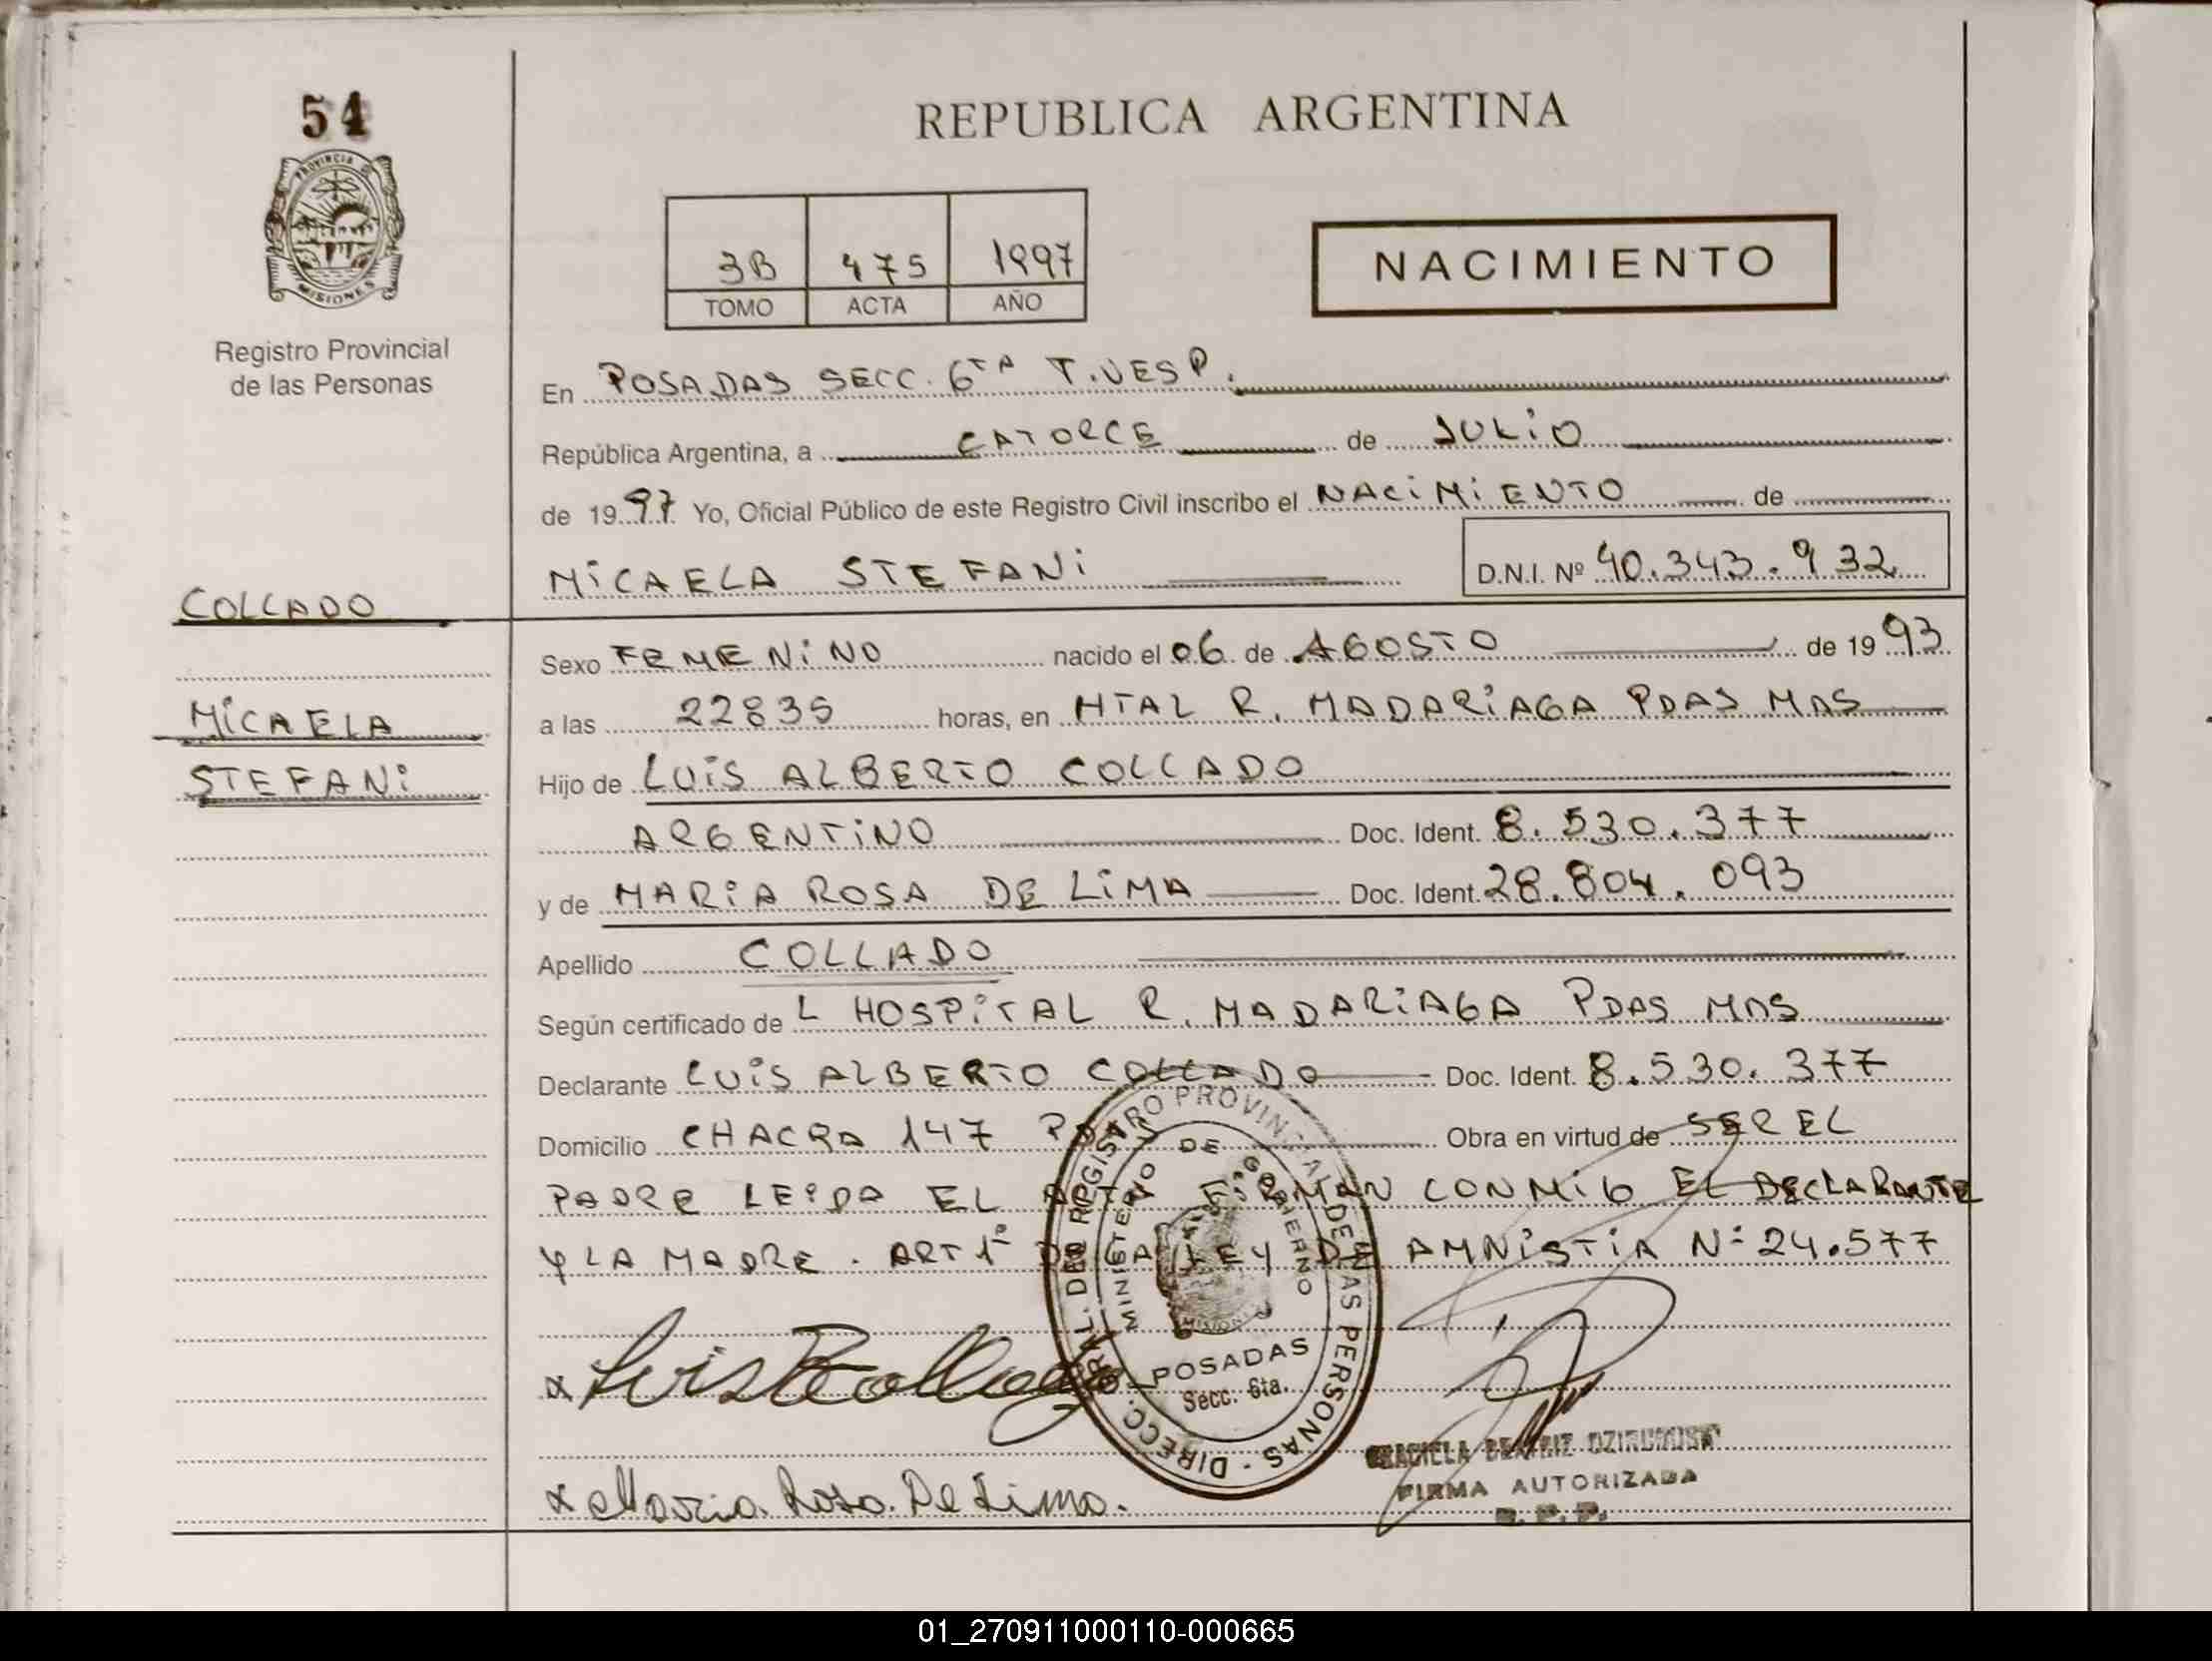 54
PROVINCIA DE
MISIONES
Registro Provincial
de las Personas
COLLADO
MICAELA
STEFANI
REPUBLICA ARGENTINA
3B 475 1997
TOMO ACTA AÑO
NACIMIENTO
En POSADAS SECC. 6TA T.VESP.
República Argentina, a CATORCE de JULIO
de 1997 Yo, Oficial Público de este Registro Civil inscribo el NACIMIENTO de
MICAELA STEFANI D.N.I. Nº 40.343.932
Sexo FEMENINO nacido el 06 de AGOSTO de 1993
a las 22835 horas, en HTAL R. MADARIAGA PDAS MNS
Hijo de LUIS ALBERTO COLLADO
ARGENTINO Doc. Ident. 8.530.377
y de MARIA ROSA DE LIMA Doc. Ident. 28.804.093
Apellido COLLADO
Según certificado de L HOSPITAL R. MADARIAGA PDAS MNS
Declarante LUIS ALBERTO COLLADO Doc. Ident. 8.530.377
Domicilio CHACRA 147 PDAS Obra en virtud de SER EL
PADRE LEIDA EL ACTA FIRMAN CONMIGO EL DECLARANTE
Y LA MADRE. ART 1º DE LA LEY DE AMNISTIA Nº 24.577
DIRECC. GRAL. DEL REGISTRO PROVINCIAL DE LAS PERSONAS -
MINISTERIO DE GOBIERNO
MISIONES
POSADAS
Secc. 6ta.
x Luis A Collado
x Maria Rosa De Lima.
GRACIELA BEATRIZ
FIRMA AUTORIZADA
R. P. P.
01_270911000110-000665